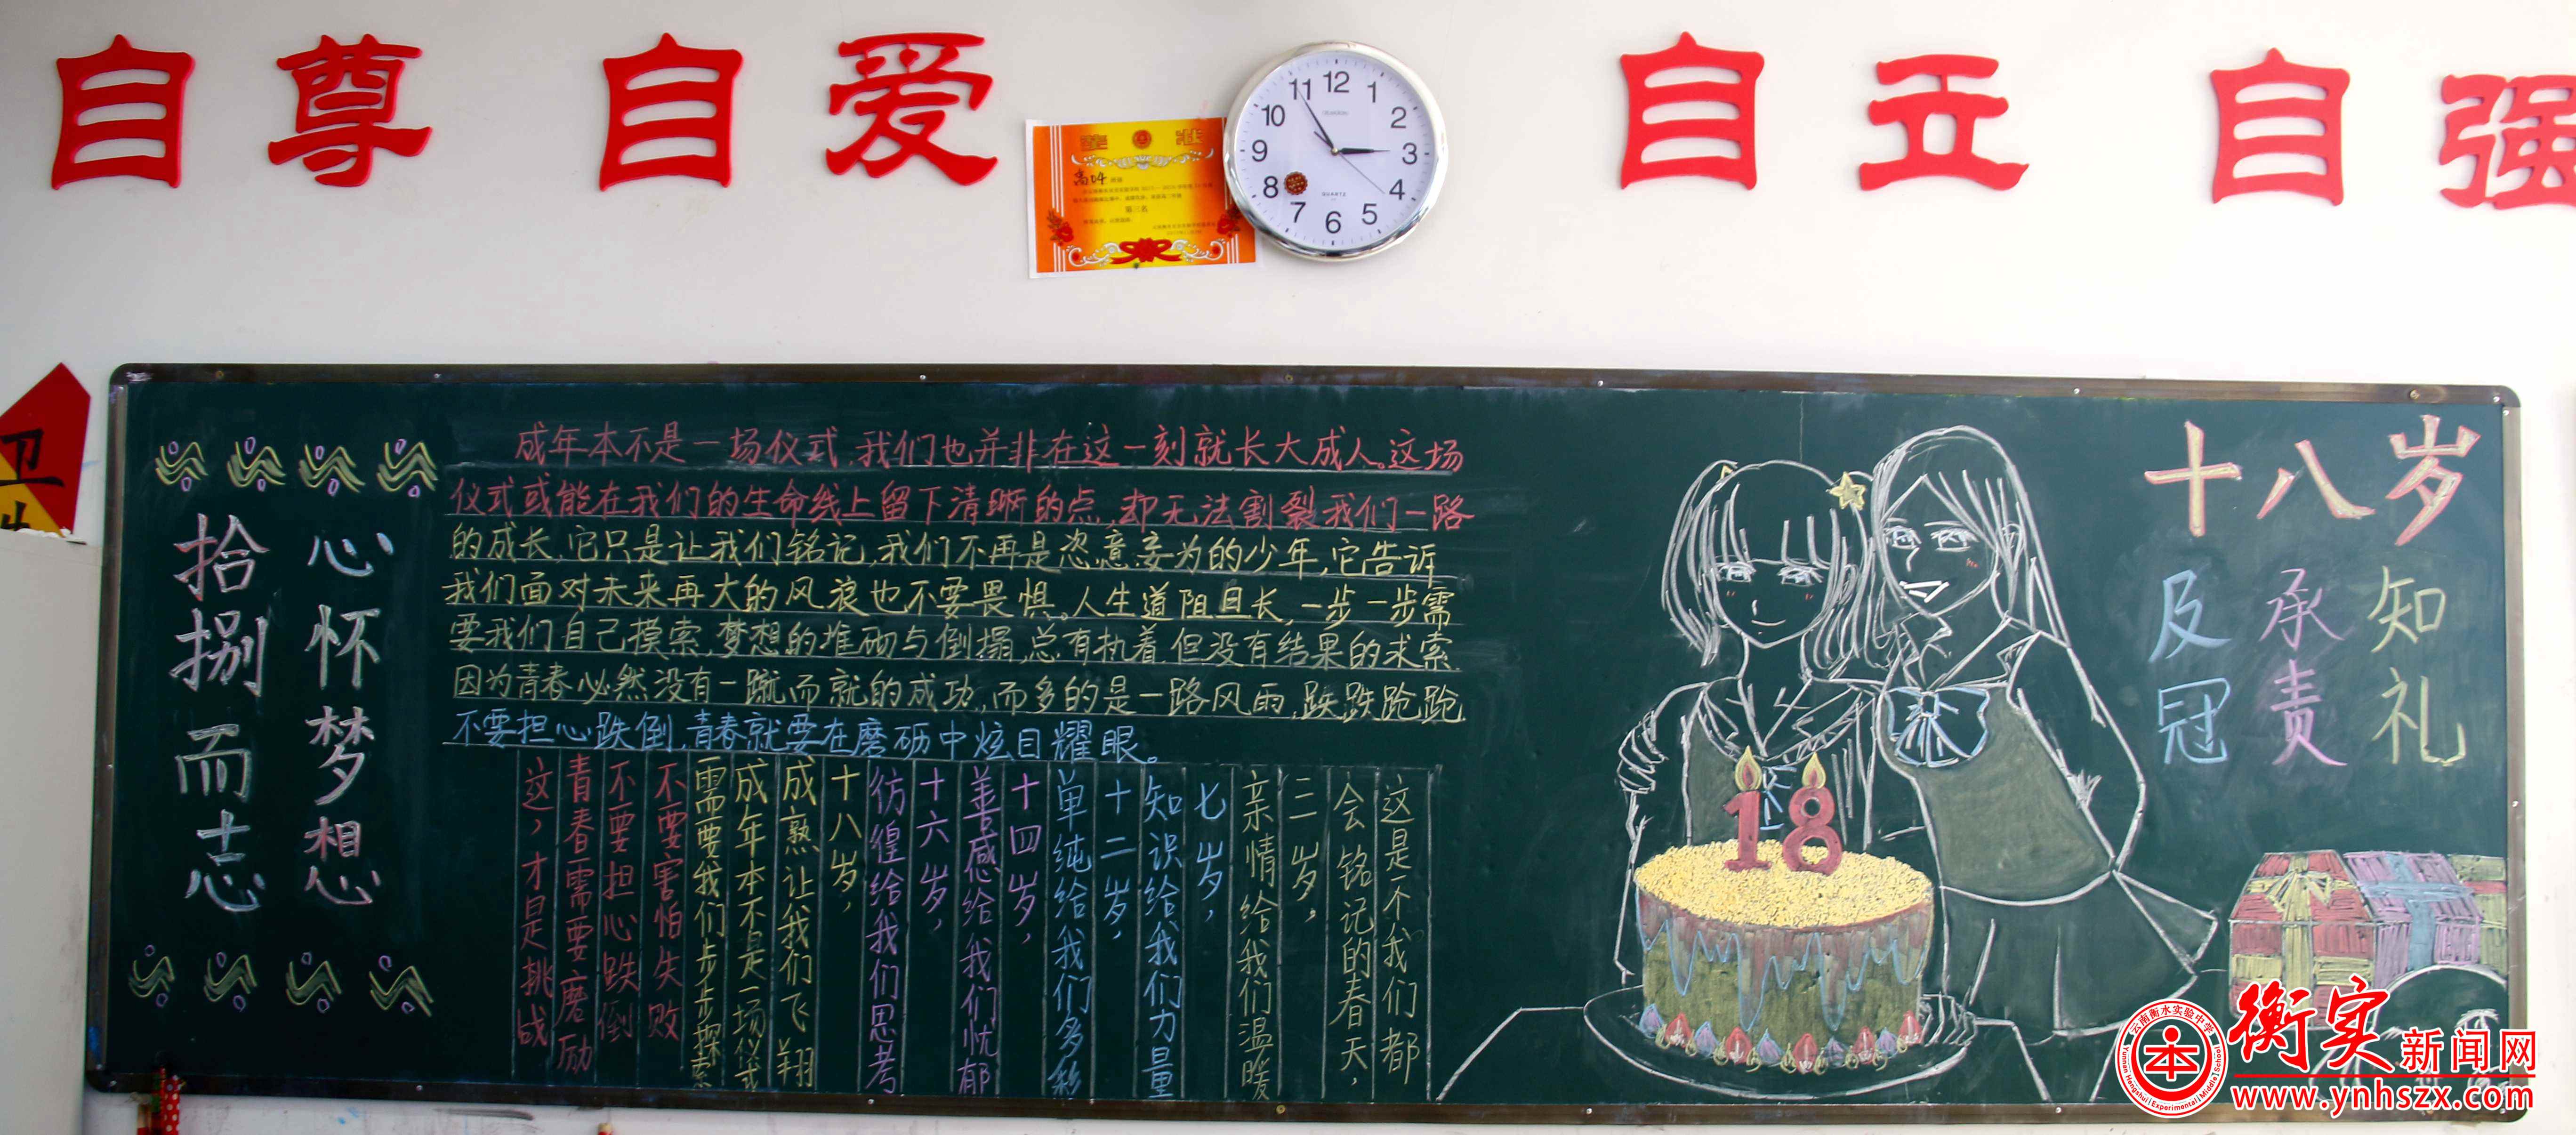 自尊 自爱 自立 自强
奖状
高04班
第三名
12 1 2 3 4 5 6 7 8 9 10 11
QUARTZ
卫
心怀梦想
拾捌而志
成年本不是一场仪式,我们也并非在这一刻就长大成人。这场
仪式或能在我们的生命线上留下清晰的点,却无法割裂我们一路
的成长,它只是让我们铭记,我们不再是恣意妄为的少年,它告诉
我们面对未来再大的风浪也不要畏惧。人生道阻且长,一步一步需
要我们自己摸索,梦想的堆砌与倒塌,总有执着但没有结果的求索,
因为青春必然没有一蹴而就的成功,而多的是一路风雨,跌跌跄跄,
不要担心跌倒,青春就要在磨砺中炫目耀眼。
这是个我们都
会铭记的春天,
三岁,
亲情给我们温暖
七岁,
知识给我们力量
十二岁,
单纯给我们多彩
十四岁,
善感给我们忧郁
十六岁,
彷徨给我们思考
十八岁,
成熟让我们飞翔
成年本不是一场仪式
需要我们步步探索
不要害怕失败
不要担心跌倒
青春需要磨励
这,才是挑战
十八岁
知礼
承责
及冠
18
云南衡水实验中学
Yunnan Hengshui Experimental Middle School
本
衡实新闻网
www.ynhszx.com